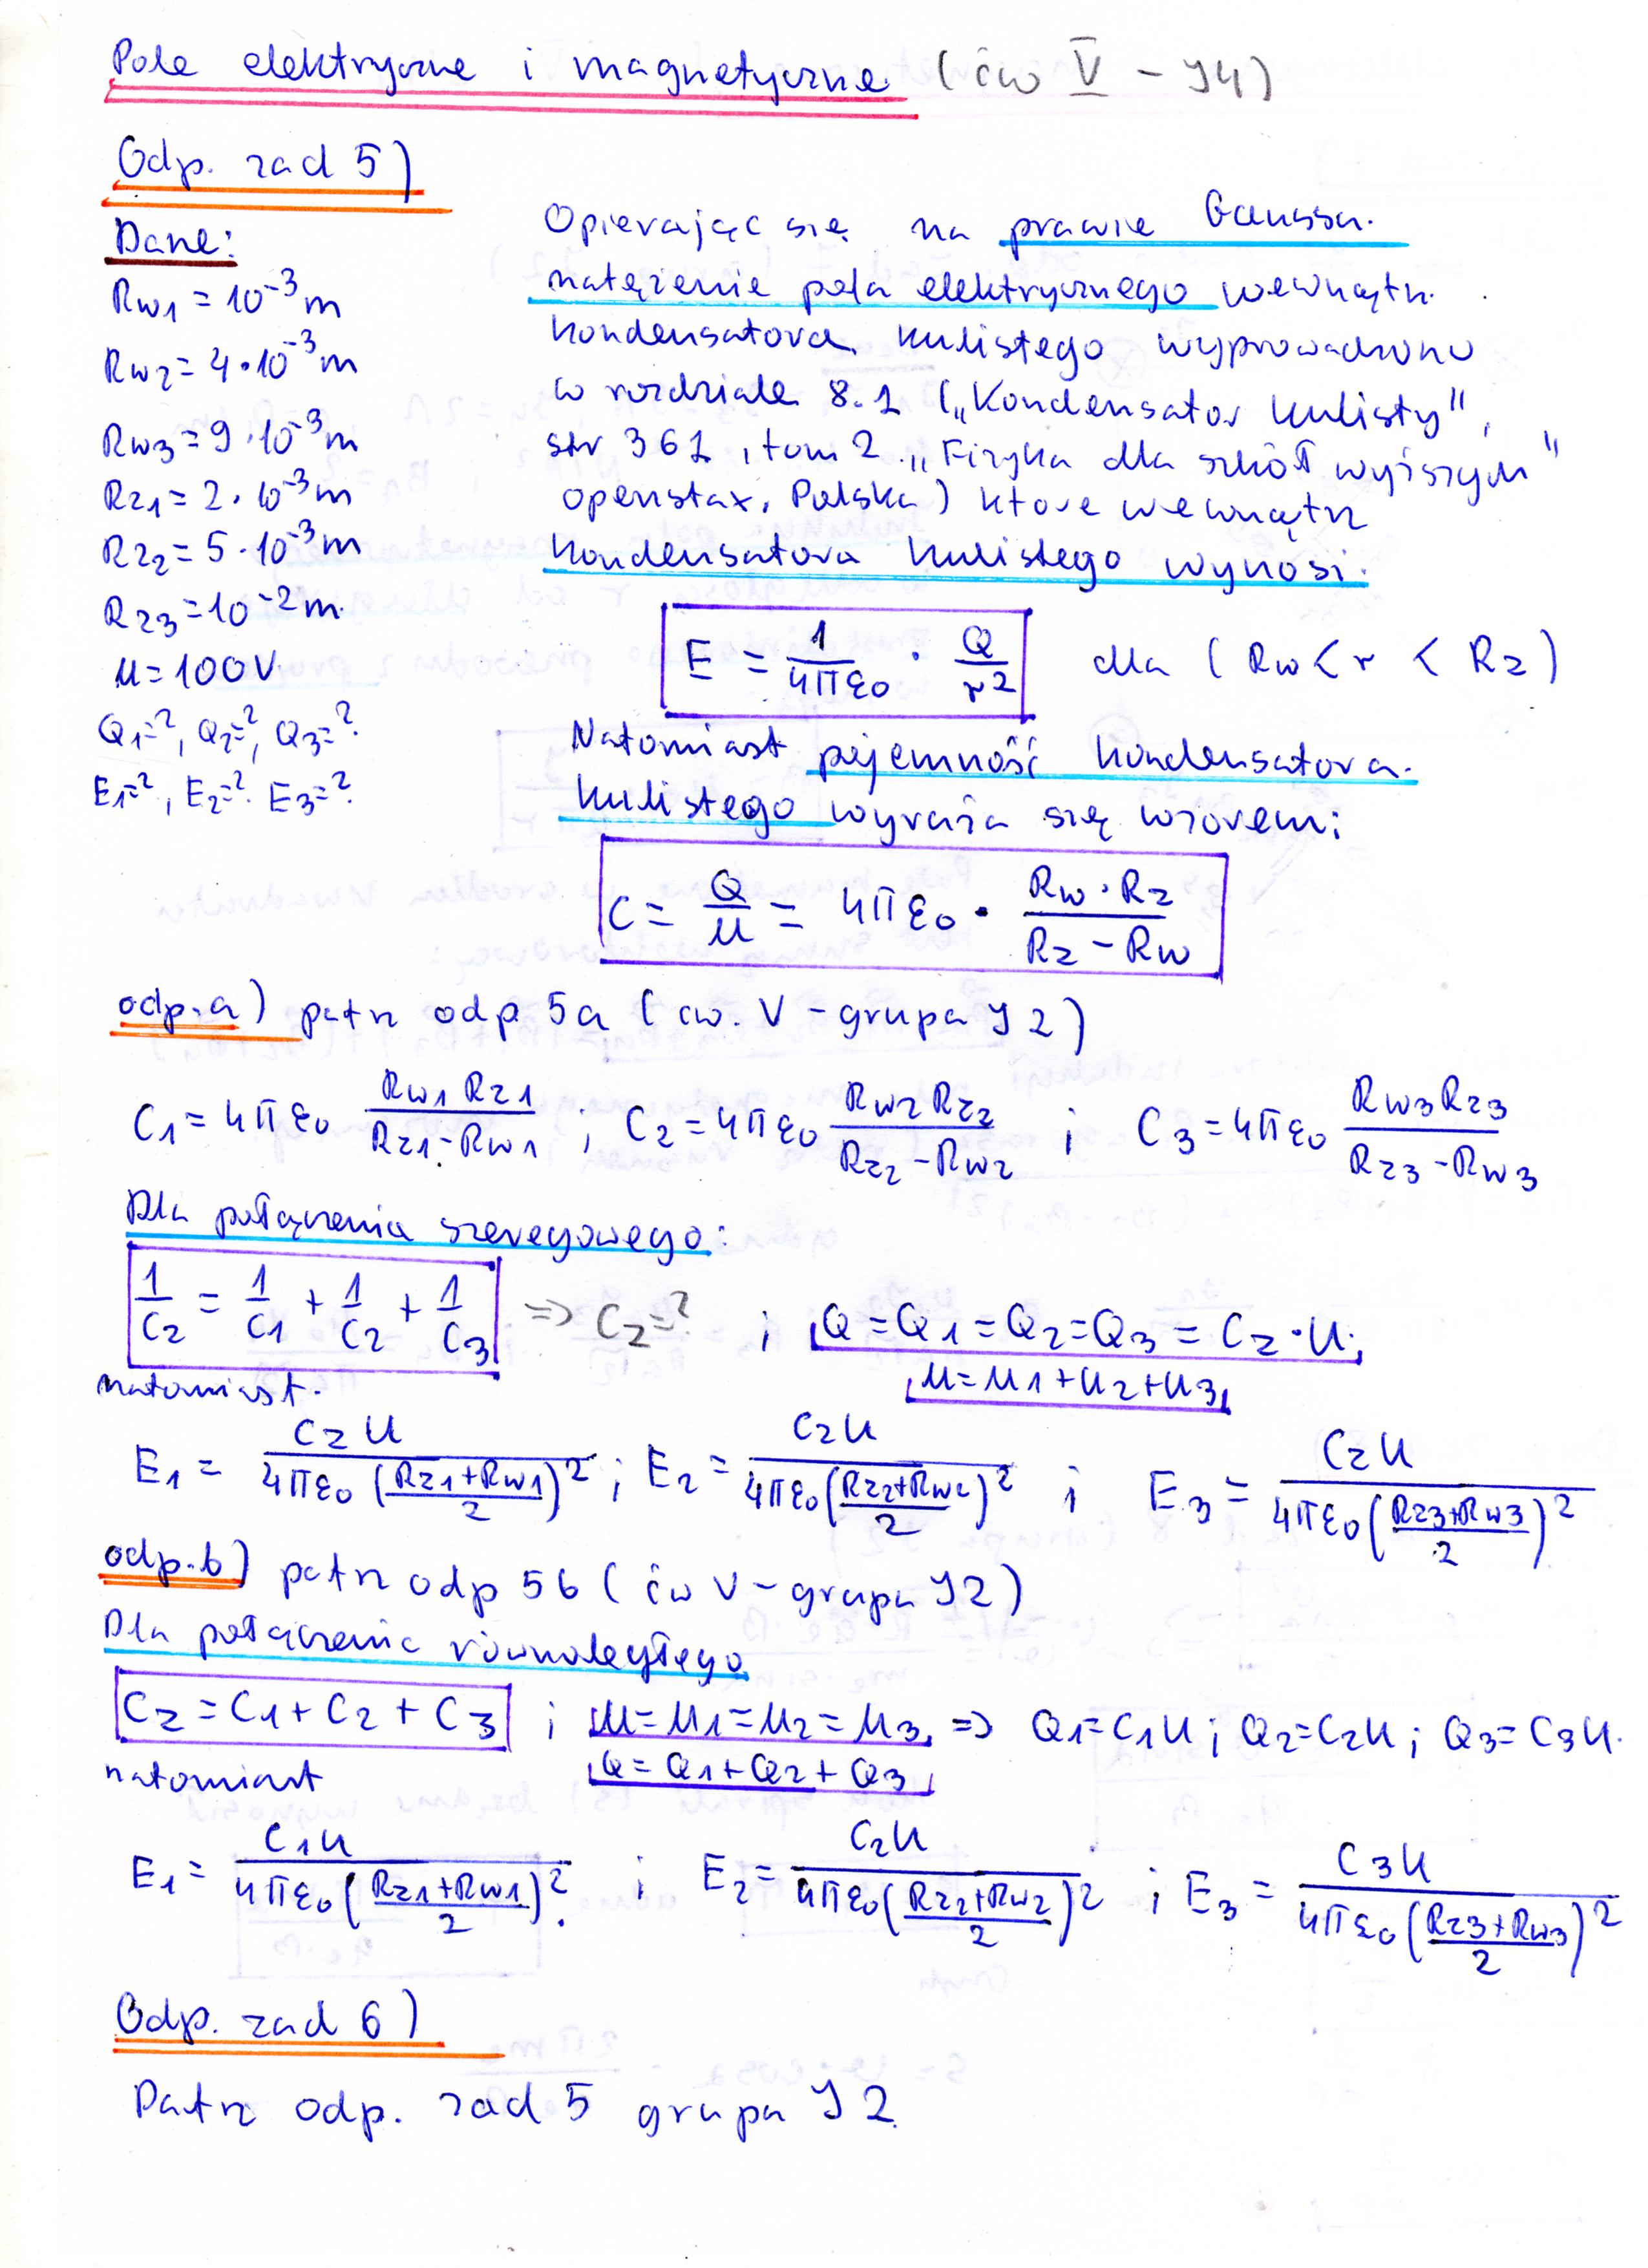 Pole elektryczne i magnetyczne (ćw V - J4)
Odp. zad 5)
Dane:
Rw1 = 10⁻³m
Rw2 = 4·10⁻³m
Rw3 = 9·10⁻³m
Rz1 = 2·10⁻³m
Rz2 = 5·10⁻³m
Rz3 = 10⁻²m
U = 100V
Q1=?, Q2=?, Q3=?
E1=?, E2=? E3=?
Opierając się na prawie Gaussa
natężenie pola elektrycznego wewnątrz
kondensatora kulistego wyprowadzono
w rozdziale 8.1 („Kondensator kulisty",
str 361, tom 2 „Fizyka dla szkół wyższych"
openstax, Polska) które wewnątrz
kondensatora kulistego wynosi:
E = 1/(4πε₀) · Q/r² dla (Rw < r < Rz)
Natomiast pojemność kondensatora
kulistego wyraża się wzorem:
C = Q/U = 4πε₀ · (Rw·Rz)/(Rz - Rw)
odp.a) patrz odp 5a (ćw. V - grupa J2)
C1 = 4πε₀ (Rw1 Rz1)/(Rz1 - Rw1) ; C2 = 4πε₀ (Rw2 Rz2)/(Rz2 - Rw2) i C3 = 4πε₀ (Rw3 Rz3)/(Rz3 - Rw3)
Dla połączenia szeregowego:
1/Cz = 1/C1 + 1/C2 + 1/C3 => Cz=? i Q = Q1 = Q2 = Q3 = Cz·U;
U = U1 + U2 + U3
natomiast
E1 = CzU/(4πε₀((Rz1+Rw1)/2)²) ; E2 = CzU/(4πε₀((Rz2+Rw2)/2)²) i E3 = CzU/(4πε₀((Rz3+Rw3)/2)²)
odp.b) patrz odp 5b (ćw V - grupa J2)
Dla połączenia równoległego
Cz = C1 + C2 + C3 i U = U1 = U2 = U3, => Q1 = C1U ; Q2 = C2U ; Q3 = C3U.
Q = Q1 + Q2 + Q3
natomiast
E1 = C1U/(4πε₀((Rz1+Rw1)/2)²) i E2 = C2U/(4πε₀((Rz2+Rw2)/2)²) i E3 = C3U/(4πε₀((Rz3+Rw3)/2)²)
Odp. zad 6)
Patrz odp. zad 5 grupa J2